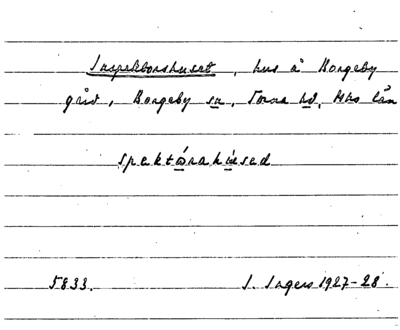 Inspektorshuset, hus å Borgeby
gård, Borgeby sn, Torna hd, Mhs län
spektórahúsed
5833. I. Ingers 1927-28.